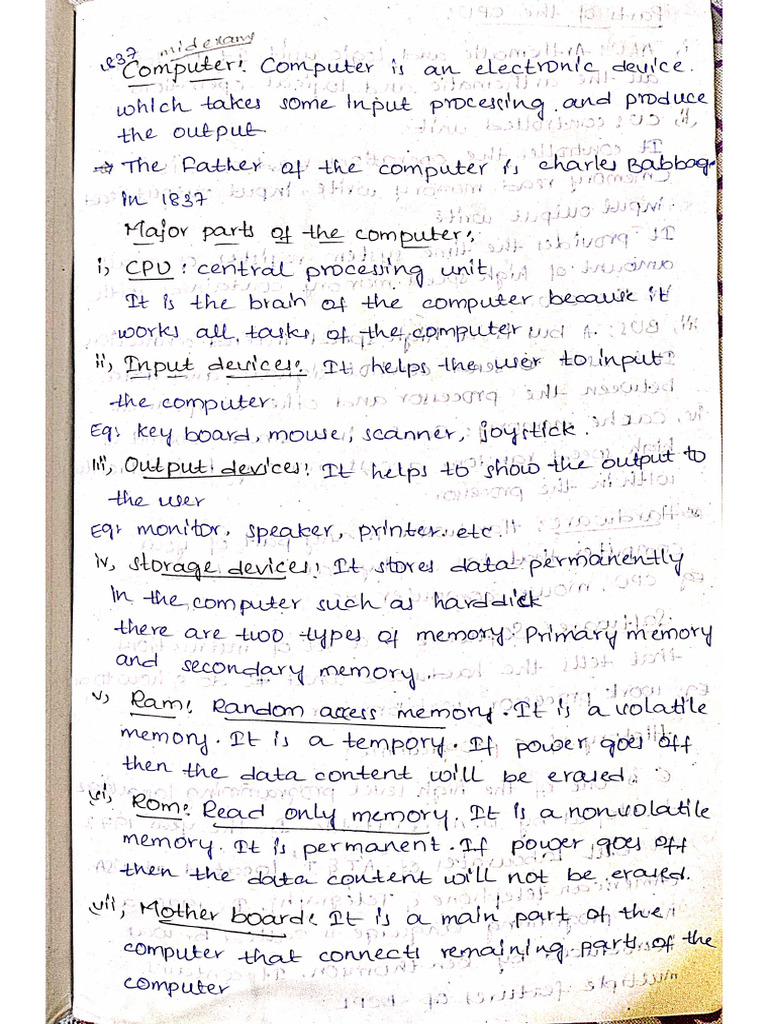 mid exam
1837
Computer: Computer is an electronic device.
which takes some input processing and produce
the output
→ The Father of the computer is charles Babbage
in 1837
Major parts of the computer:
i, CPU: central processing unit
It is the brain of the computer because it
works all tasks of the computer.
ii, Input devices: It helps the user to input
the computer.
Eg: key board, mouse, scanner, joystick.
iii, Output devices: It helps to show the output to
the user
Eg: monitor, speaker, printer. etc.
iv, storage devices: It stores data permanently
in the computer such as harddisk
there are two types of memory. Primary memory
and secondary memory.
v, Ram: Random access memory. It is a volatile
memory. It is a tempory. If power goes off
then the data content will be erased.
vi, Rom: Read only memory. It is a nonvolatile
memory. It is permanent. If power goes off
then the data content will not be erased.
vii, Mother board: It is a main part of the
computer that connects remaining parts of the
computer